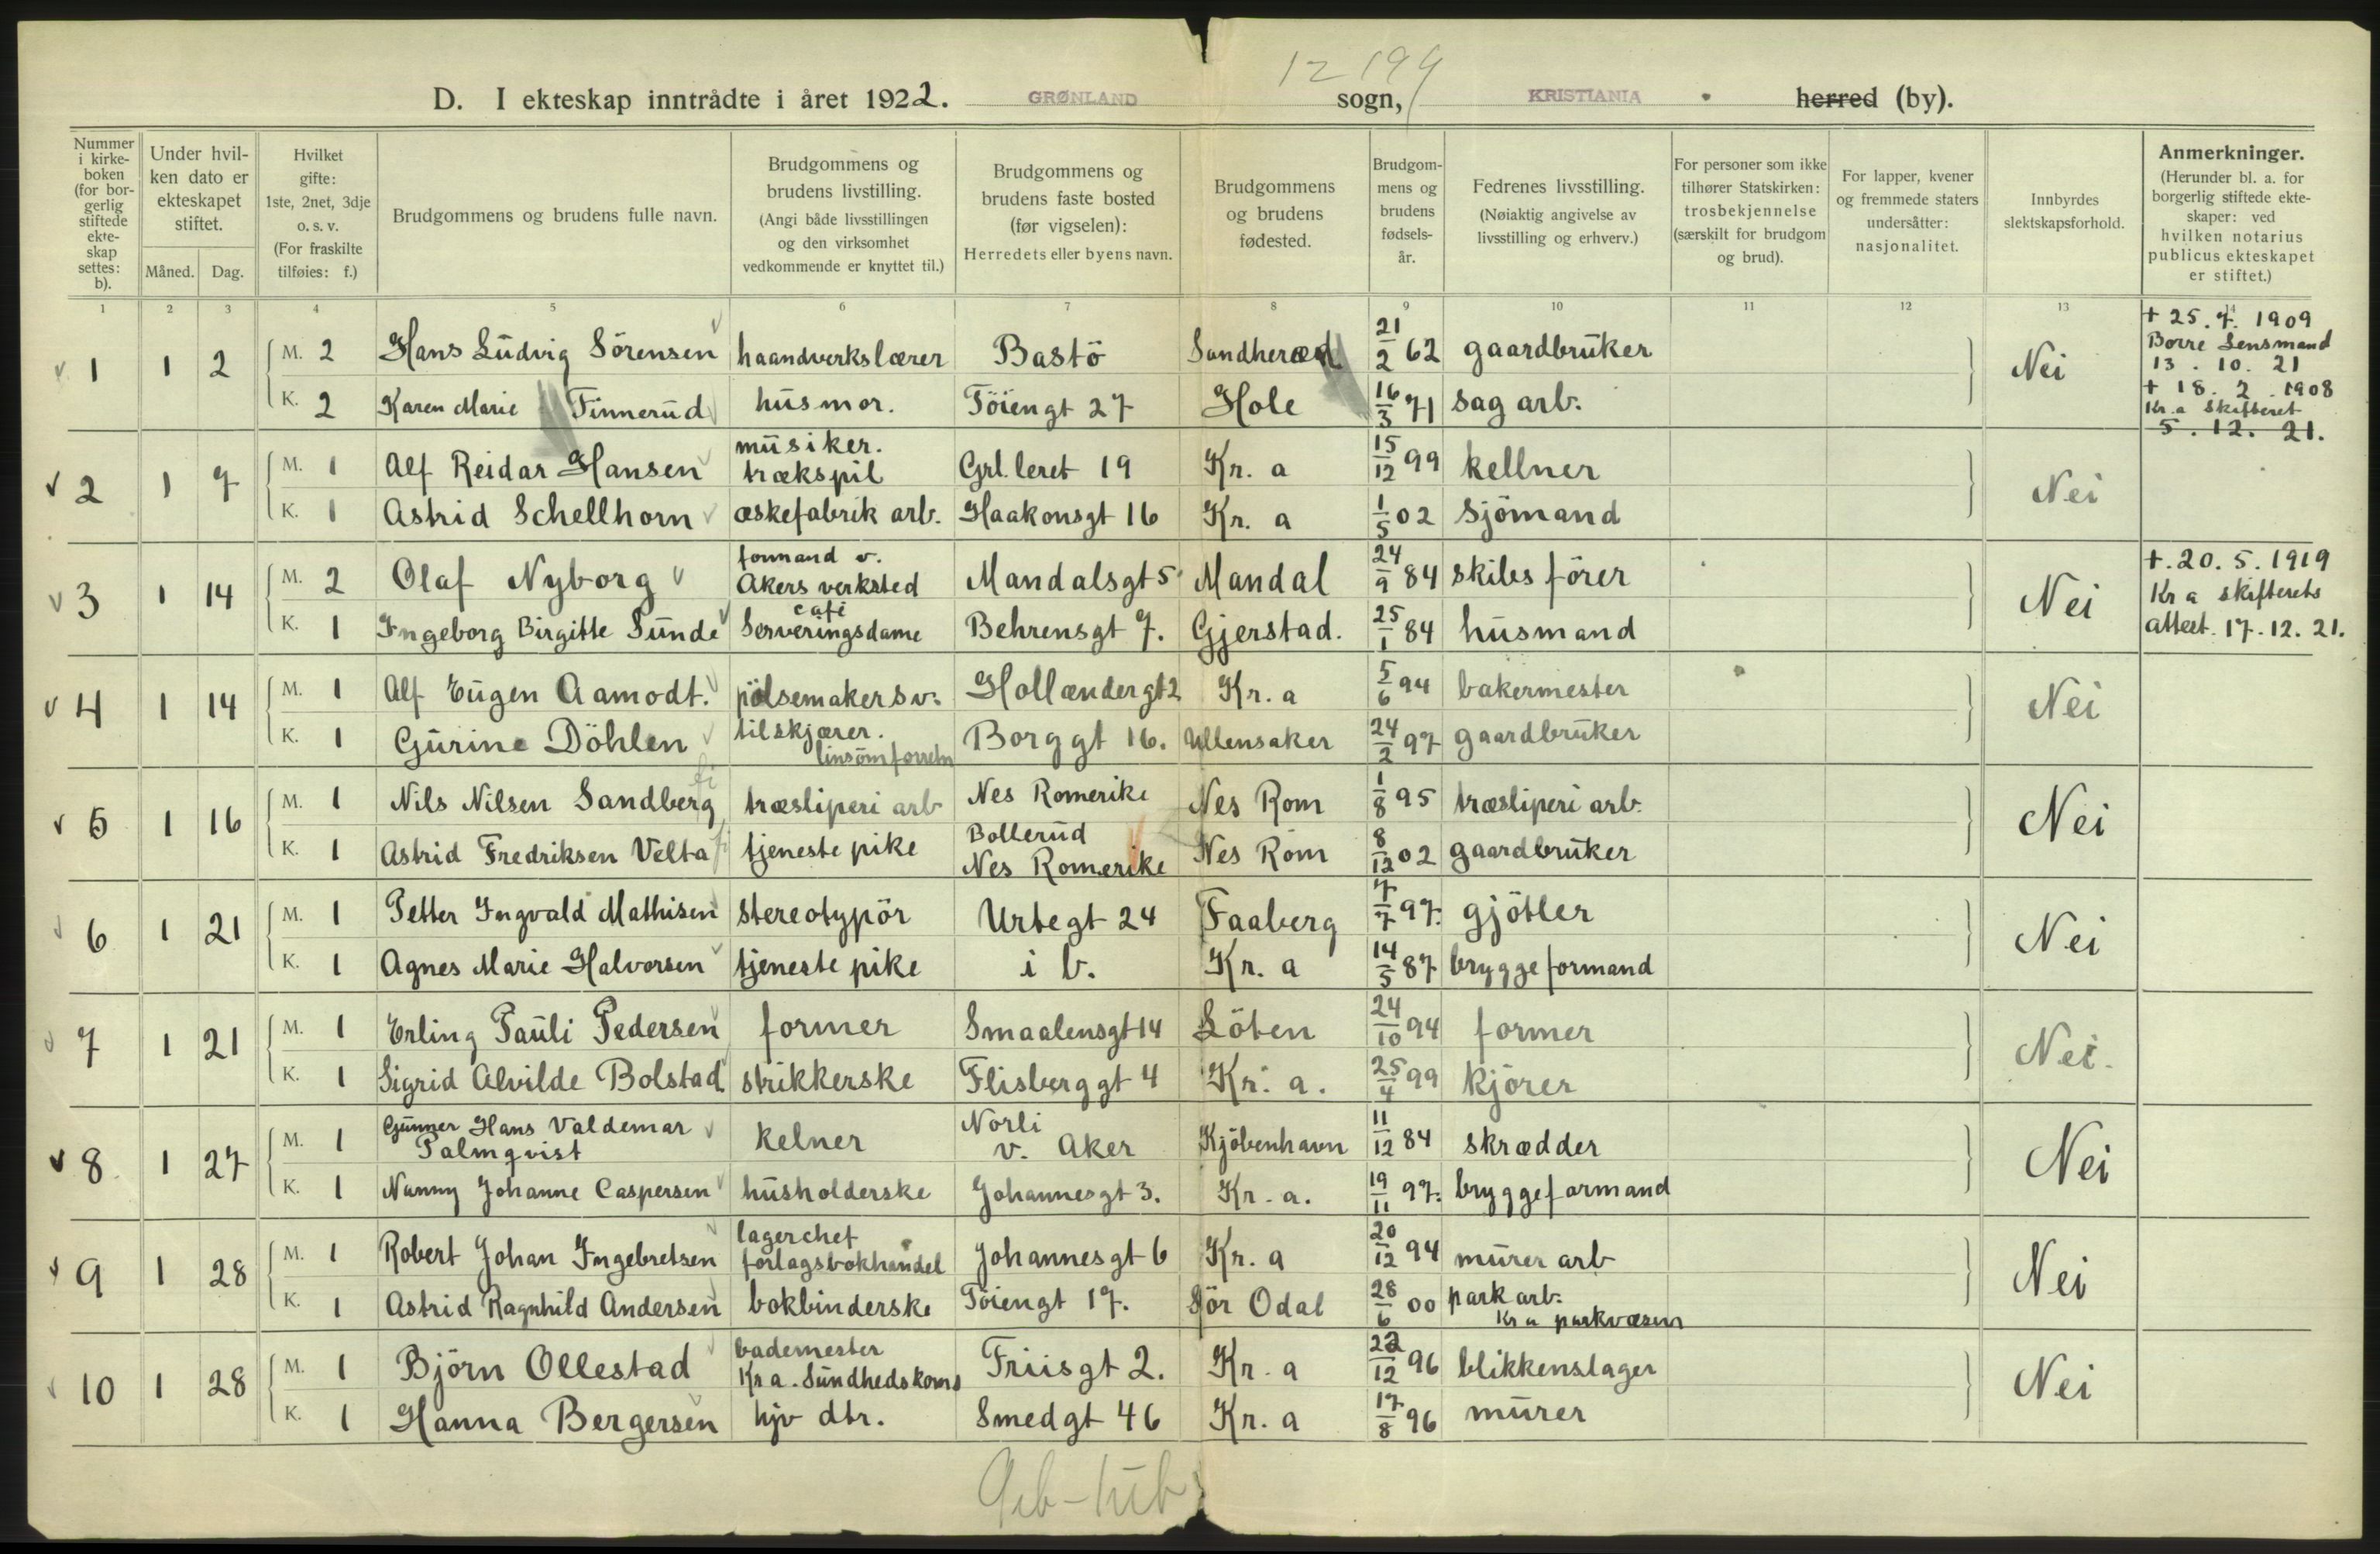 12 194
D. I ekteskap inntrådte i året 1922. GRØNLAND sogn, KRISTIANIA herred (by).
Nummer i kirkeboken (for borgerlig stiftede ekteskap settes: b).
Under hvilken dato er ekteskapet stiftet.
Måned. Dag.
Hvilket gifte: 1ste, 2net, 3dje o. s. v. (For fraskilte tilføies: f.)
Brudgommens og brudens fulle navn.
Brudgommens og brudens livstilling. (Angi både livsstillingen og den virksomhet vedkommende er knyttet til.)
Brudgommens og brudens faste bosted (før vigselen): Herredets eller byens navn.
Brudgommens og brudens fødested.
Brudgommens og brudens fødselsår.
Fedrenes livsstilling. (Nøiaktig angivelse av livsstilling og erhverv.)
For personer som ikke tilhører Statskirken: trosbekjennelse (særskilt for brudgom og brud).
For lapper, kvener og fremmede staters undersåtter: nasjonalitet.
Innbyrdes slektskapsforhold.
Anmerkninger. (Herunder bl. a. for borgerlig stiftede ekteskaper: ved hvilken notarius publicus ekteskapet er stiftet.)
1 2 3 4 5 6 7 8 9 10 11 12 13 14
1 1 2 M. 2 Hans Ludvig Sörensen haandverkslærer Bastö Sandherad 21/2 62 gaardbruker Nei
K. 2 Karen Marie Finnerud husmor. Töiengt 27 Hole 16/3 71 sag arb.
+ 25. 7. 1909
Borre Lensmand
13. 10. 21
+ 18. 2. 1908
Kr.a Skifteret
5. 12. 21.
2 1 7 M. 1 Alf Reidar Hansen musiker. trækspil Grl. leret 19 Kr. a 15/12 99 kellner Nei
K. 1 Astrid Schellhorn æskefabrik arb. Haakonsgt 16 Kr. a 1/5 02 Sjömand
3 1 14 M. 2 Olaf Nyborg formand v. Akers verksted Mandalsgt 5 Mandal 24/9 84 skibsförer Nei
K. 1 Ingeborg Birgitte Sunde café Serveringsdame Behrensgt 7. Gjerstad. 25/1 84 husmand
+. 20. 5. 1919
Kr a skifterets
attest. 17. 12. 21.
4 1 14 M. 1 Alf Eugen Aamodt. pölsemakersv. Hollændergt 2 Kr. a 5/6 94 bakermester Nei
K. 1 Gurine Döhlen tilskjærer. linsömforretn Borggt 16. Ullensaker 24/2 97 gaardbruker
5 1 16 M. 1 Nils Nilsen Sandberg træsliperi arb Nes Romerike Nes Rom 1/8 95 træsliperi arb. Nei
K. 1 Astrid Fredriksen Velta tjenestepike Bollerud Nes Romerike Nes Rom 8/12 02 gaardbruker
6 1 21 M. 1 Petter Ingvald Mathisen stereotypör Urtegt 24 Faaberg 7/7 97. gjötler Nei
K. 1 Agnes Marie Halvorsen tjenestepike i b. Kr. a 14/5 87 bryggeformand
7 1 21 M. 1 Erling Pauli Pedersen former Smaalensgt 14 Löten 24/10 94 former Nei.
K. 1 Sigrid Alvilde Bolstad strikkerske Flisberggt 4 Kr. a. 25/4 99 kjörer
8 1 27 M. 1 Gunner Hans Valdemar Palmqvist kelner Norli v. Aker Kjöbenhavn 11/12 84 skrædder Nei
K. 1 Nanny Johanne Caspersen husholderske Johannesgt 3. Kr. a. 19/11 97. bryggeformand
9 1 28 M. 1 Robert Johan Ingebretsen lagerchef forlagsbokhandel Johannesgt 6 Kr. a 20/12 94 murer arb Nei
K. 1 Astrid Ragnhild Andersen bokbinderske Töiengt 17. Sör Odal 28/6 00 park arb. Kr a parkvæsen
10 1 28 M. 1 Björn Ollestad bademester Kr a. Sundhedskoms Friisgt 2. Kr. a 22/12 96 blikkenslager Nei
K. 1 Hanna Bergersen hjv dtr. Smedgt 46 Kr. a 17/8 96 murer